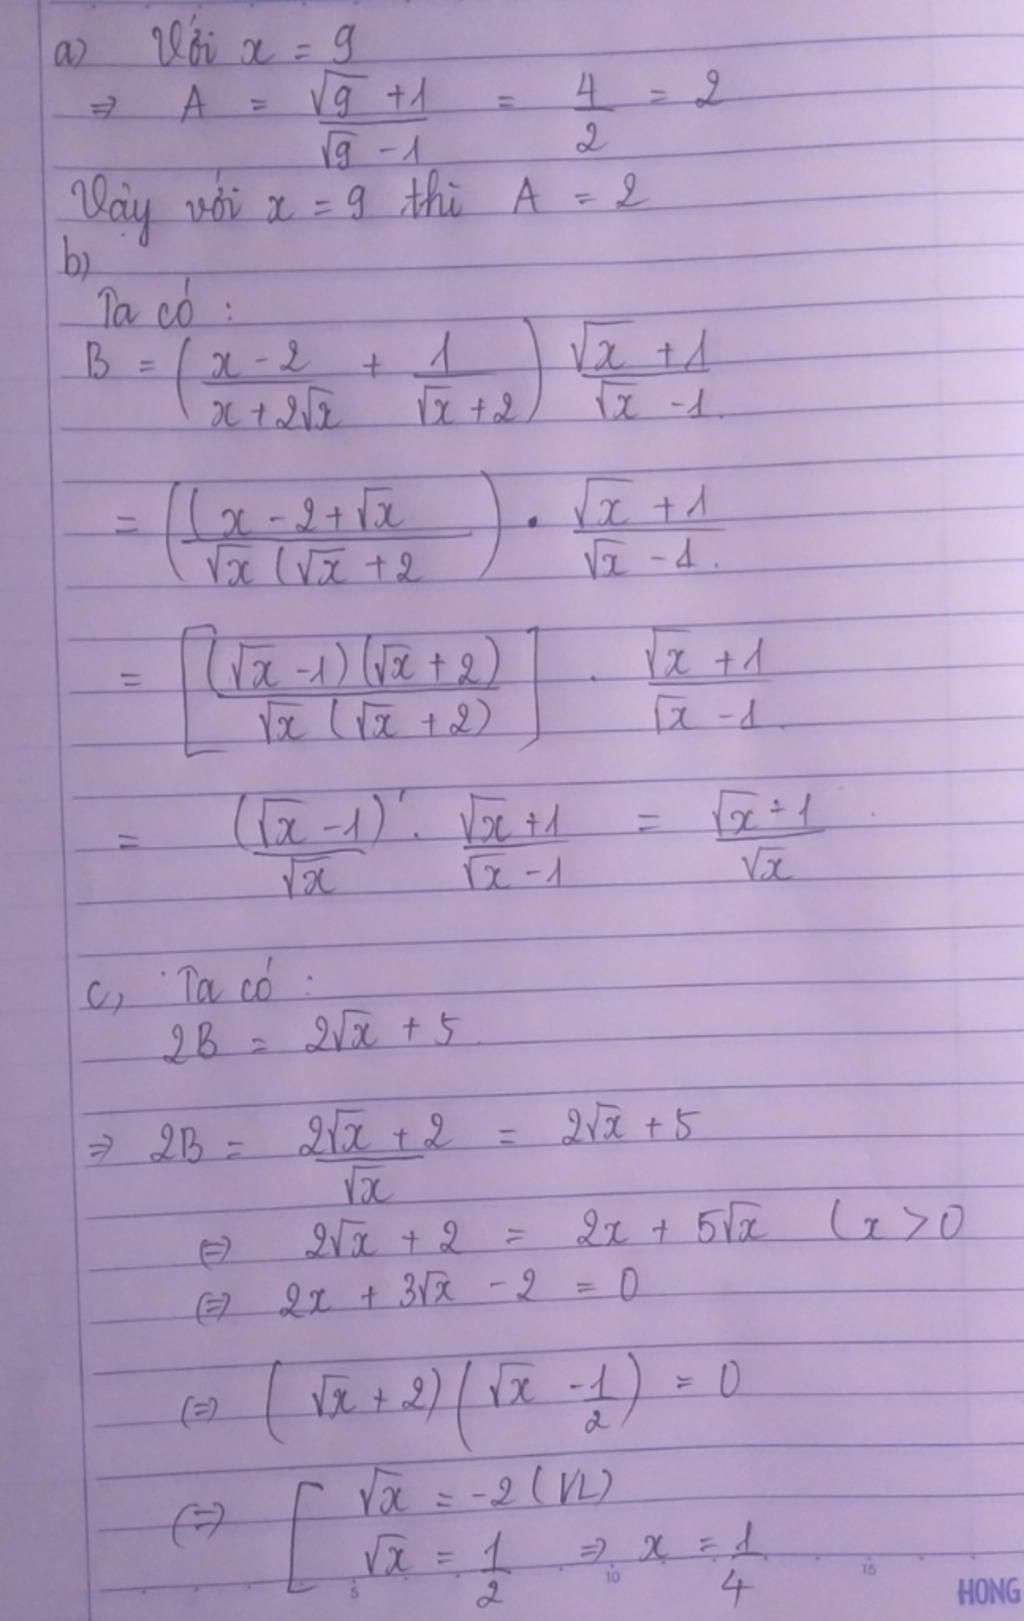 a) Với x = 9
⇒ A = (√9 + 1)/(√9 - 1) = 4/2 = 2
Vậy với x = 9 thì A = 2
b)
Ta có :
B = ((x - 2)/(x + 2√x) + 1/(√x + 2)) (√x + 1)/(√x - 1).
= (((x - 2 + √x)/(√x (√x + 2)) . (√x + 1)/(√x - 1).
= [(√x - 1)(√x + 2)/(√x (√x + 2))] . (√x + 1)/(√x - 1).
= (√x - 1)/√x . (√x + 1)/(√x - 1) = (√x + 1)/√x .
c, Ta có :
2B = 2√x + 5
⇒ 2B = (2√x + 2)/√x = 2√x + 5
⇔ 2√x + 2 = 2x + 5√x (x > 0
⇔ 2x + 3√x - 2 = 0
⇔ (√x + 2)(√x - 1/2) = 0
⇔ [ √x = -2 (VL)
√x = 1/2 ⇒ x = 1/4
5 10 15 HONG